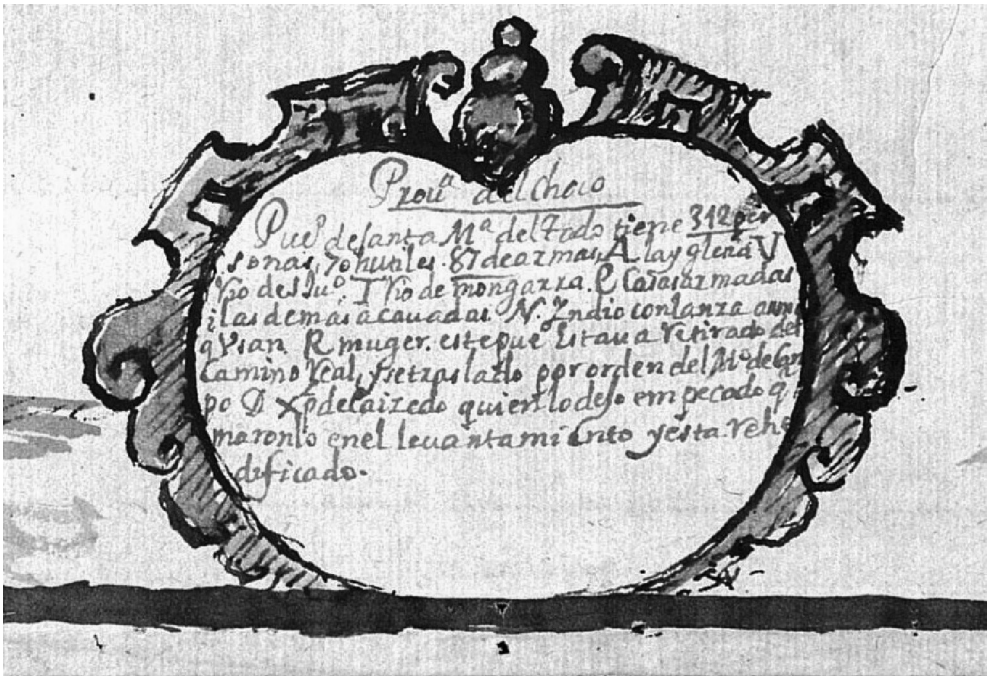 Prouᵃ del choco
Pueº de santa Mᵃ del Zado tiene 312 per
sonas, 70 hutiles. 87 de armas, A la yglesia V
Rio de Sⁿ Juº. T Rio de mongarra. P Casas armadas
i las demas acauadas N. Indio con lanza
q Vsan R muger. este pueº Estaua retirado del
Camino Real, y se traslado por orden del Mº de Cⁿ
po D Xpº de Caizedo quien lo dejo empecado q
maronlo en el levantamiento y esta rehe
dificado.